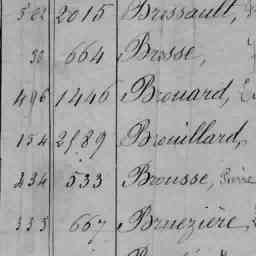 502 2015 Brissault,
30 664 Brosse,
496 1446 Brouard,
154 2589 Brouillard,
234 533 Brousse, Pierre
333 667 Bruezière,